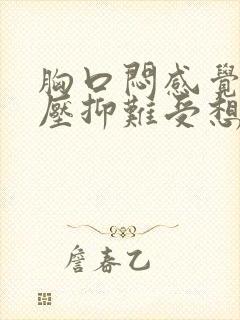 胸口悶感覺
壓抑難受想
詹春乙